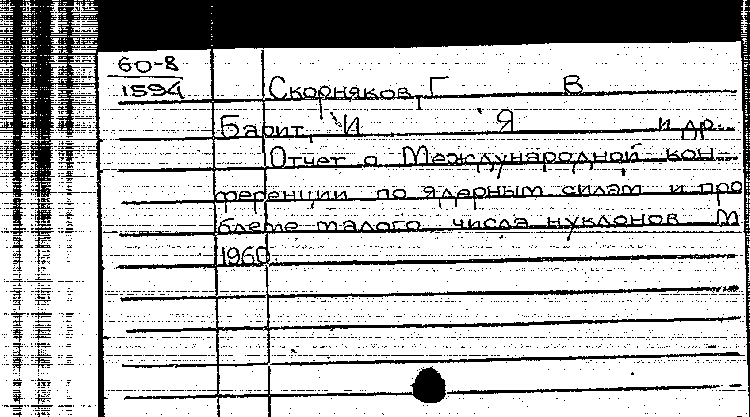 60-8
1594
Скорняков, Г В
Барит, И Я и др.
Отчет о Международной кон-
ференции по ядерным силам и про
блеме малого числа нуклонов М
1960